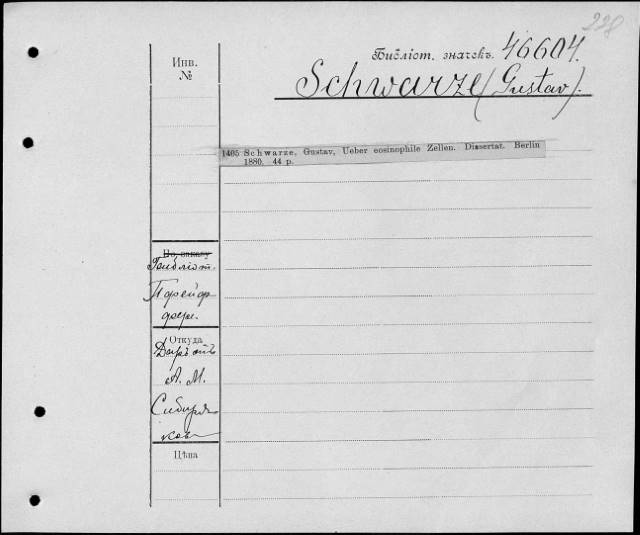 228
Библіот. значекъ. 46604.
Schwarze (Gustav).
Инв.
№
1405 Schwarze, Gustav, Ueber eosinophile Zellen. Dissertat. Berlin
1880. 44 p.
По заказу
Библіот.
Пфейф
фер.
Откуда
Даръ отъ
А. М.
Сибиря
кова
Цѣна